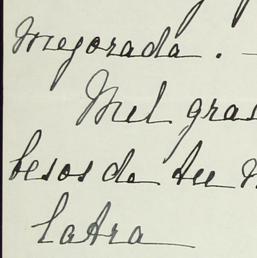 mejorada. -
Mil gras
besos de tu